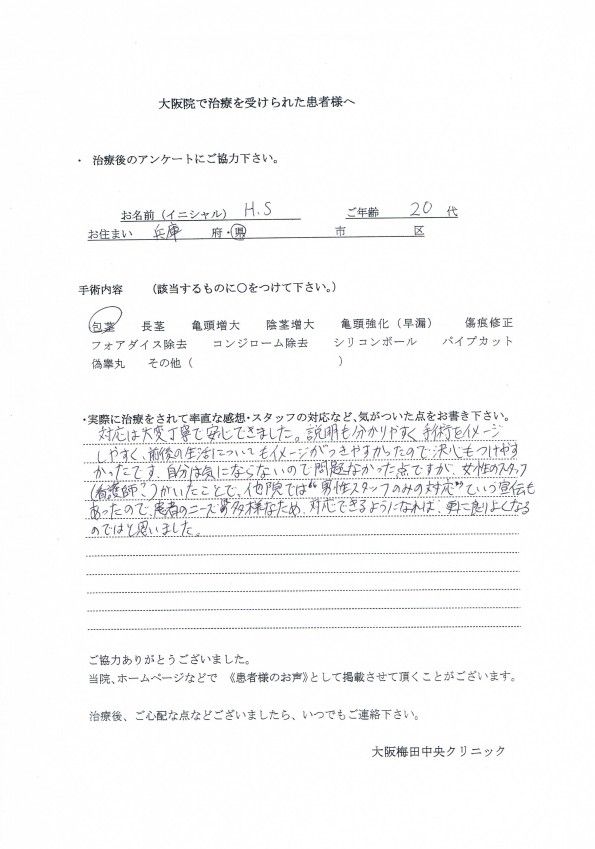 大阪院で治療を受けられた患者様へ
・ 治療後のアンケートにご協力下さい。
お名前（イニシャル） H.S ご年齢 20 代
お住まい 兵庫 府・県 市 区
手術内容 （該当するものに○をつけて下さい。）
包茎 長茎 亀頭増大 陰茎増大 亀頭強化（早漏） 傷痕修正
フォアダイス除去 コンジローム除去 シリコンボール パイプカット
偽睾丸 その他（ ）
・実際に治療をされて率直な感想・スタッフの対応など、気がついた点をお書き下さい。
対応は大変丁寧で安心できました。説明も分かりやすく手術をイメージ
しやすく、前後の生活についてもイメージがつきやすかったので決心もつけやす
かったです。自分は気にならないので問題なかった点ですが、女性のスタッフ
(看護師?)がいたことで、他院では"男性スタッフのみの対応"という宣伝も
あったので、患者のニーズが多様なため、対応できるようになれば、更に良りよくなる
のではと思いました。
ご協力ありがとうございました。
当院、ホームページなどで 《患者様のお声》として掲載させて頂くことがございます。
治療後、ご心配な点などございましたら、いつでもご連絡下さい。
大阪梅田中央クリニック